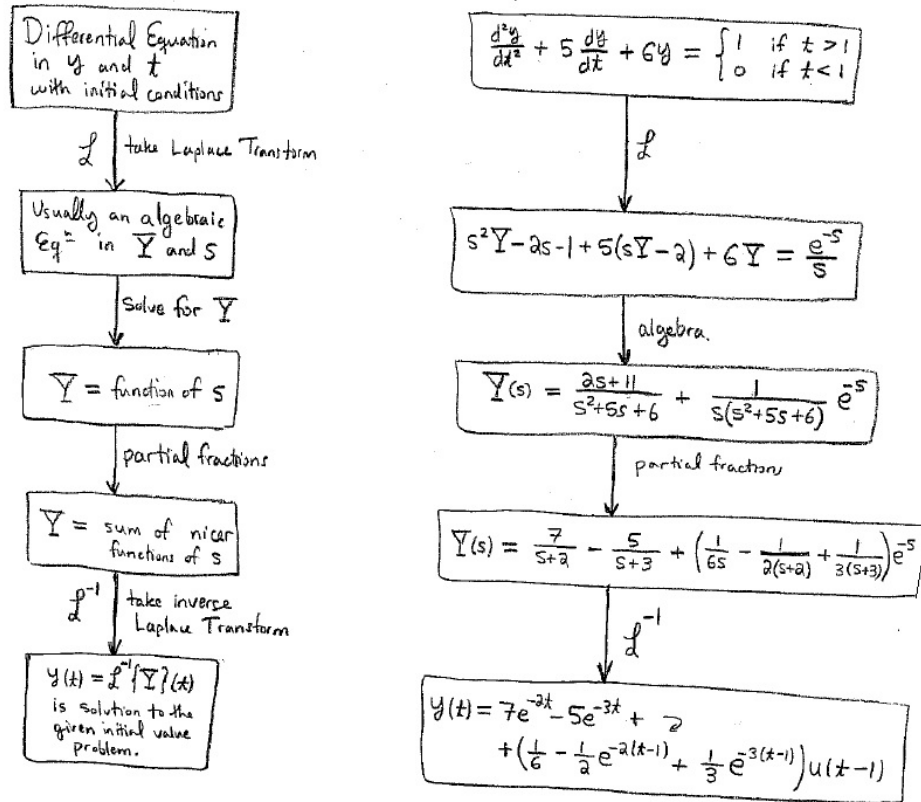 Differential Equation
in y and t
with initial conditions
ℒ take Laplace Transform
Usually an algebraic
Eqⁿ in Y and s
Solve for Y
Y = function of s
partial fractions
Y = sum of nicer
functions of s
ℒ⁻¹ take inverse
Laplace Transform
y(t) = ℒ⁻¹{Y}(t)
is solution to the
given initial value
problem.
d²y/dt² + 5 dy/dt + 6y = { 1 if t > 1
0 if t < 1
ℒ
s²Y - 2s - 1 + 5(sY - 2) + 6Y = e⁻ˢ/s
algebra.
Y(s) = (2s+11)/(s²+5s+6) + 1/(s(s²+5s+6)) e⁻ˢ
partial fractions
Y(s) = 7/(s+2) - 5/(s+3) + (1/(6s) - 1/(2(s+2)) + 1/(3(s+3)))e⁻ˢ
ℒ⁻¹
y(t) = 7e^(-2t) - 5e^(-3t) +
+ (1/6 - 1/2 e^(-2(t-1)) + 1/3 e^(-3(t-1))) u(t-1)